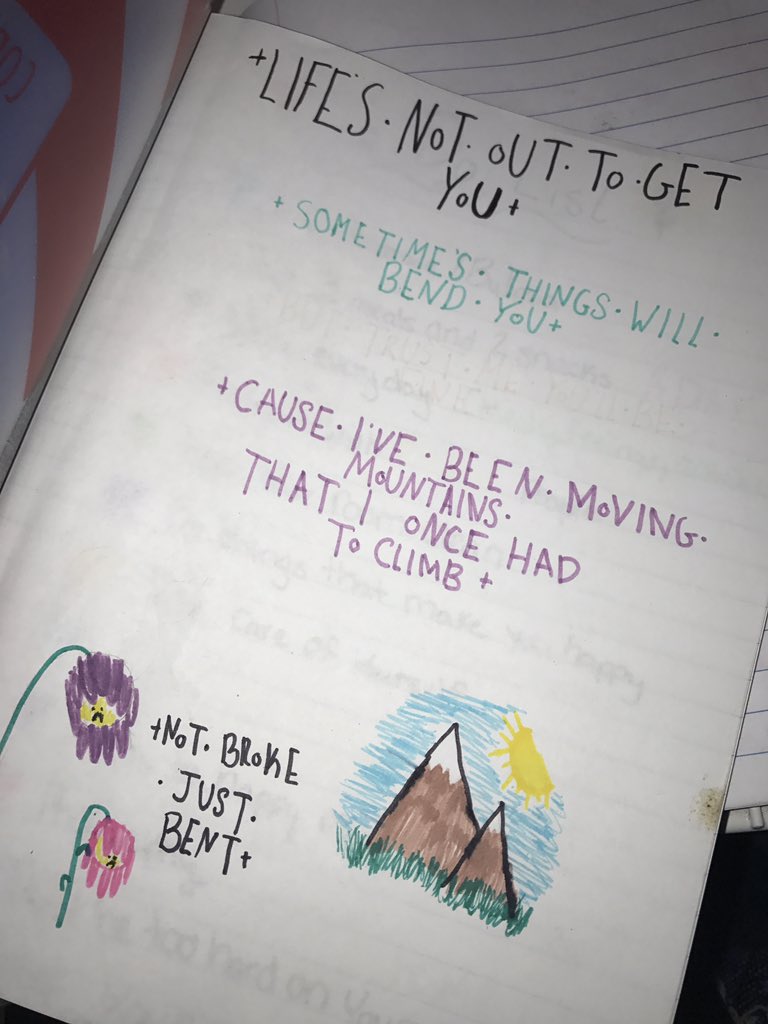 +LIFE'S·NOT·OUT·TO·GET
YOU+
+SOMETIME'S·THINGS·WILL·
BEND·YOU+
+CAUSE·I'VE·BEEN·MOVING·
MOUNTAINS·
THAT I ONCE HAD
TO CLIMB+
+NOT·BROKE
·JUST·
BENT+